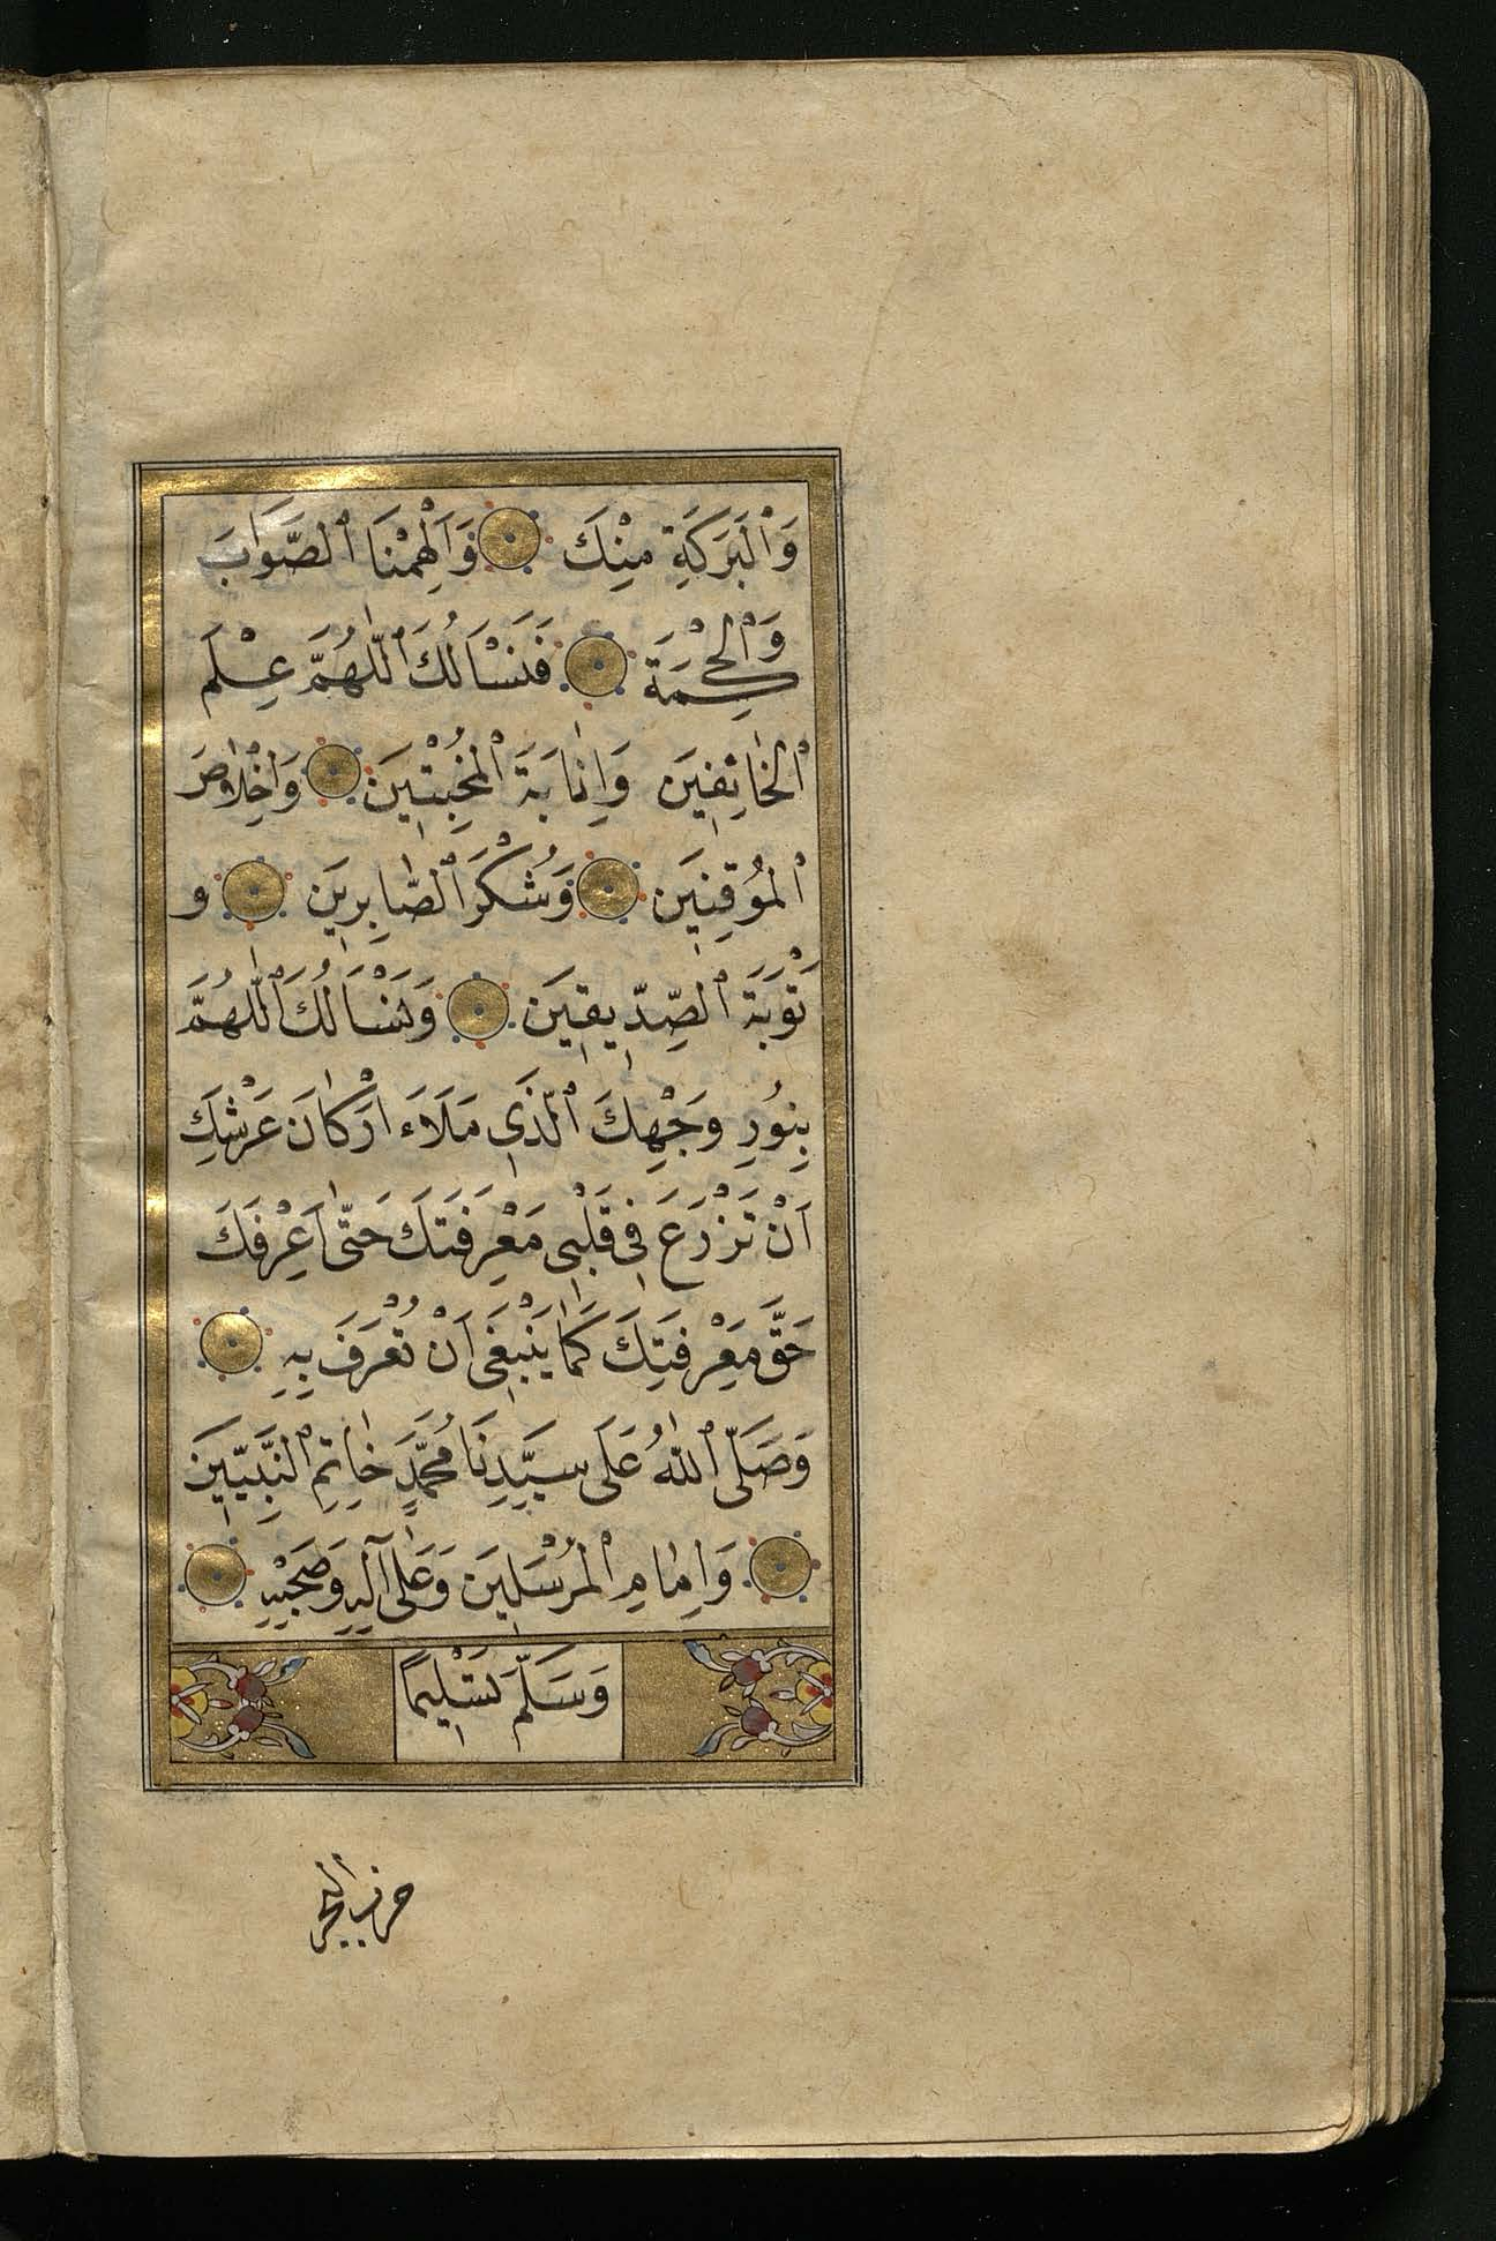 وَٱلْبَرَكَةِ مِنْكَ وَاَلْهِمْنَا ٱلصَّوَابَ
وَٱلْحِكْمَةَ فَنَسْاَلُكَ ٱللّٰهُمَّ عِلْمَ
ٱلْخَائِفِينَ وَاِنَابَةَ ٱلْمُخْبِتِينَ وَاِخْلَاصَ
ٱلْمُوقِنِينَ وَشُكْرَ ٱلصَّابِرِينَ و
تَوْبَةَ ٱلصِّدِّيقِينَ وَنَسْاَلُكَ ٱللّٰهُمَّ
بِنُورِ وَجْهِكَ ٱلَّذِي مَلَاءَ اَرْكَانَ عَرْشِكَ
اَنْ تَزْرَعَ فِي قَلْبِي مَعْرِفَتَكَ حَتّٰى اَعْرِفَكَ
حَقَّ مَعْرِفَتِكَ كَمَا يَنْبَغِي اَنْ تُعْرَفَ بِهِ
وَصَلَّى ٱللّٰهُ عَلَى سَيِّدِنَا مُحَمَّدٍ خَاتِمِ ٱلنَّبِيِّينَ
وَاِمَامِ ٱلْمُرْسَلِينَ وَعَلٰى آلِهِ وَصَحْبِهِ
وَسَلَّمَ تَسْلِيمًا
حزب البحر